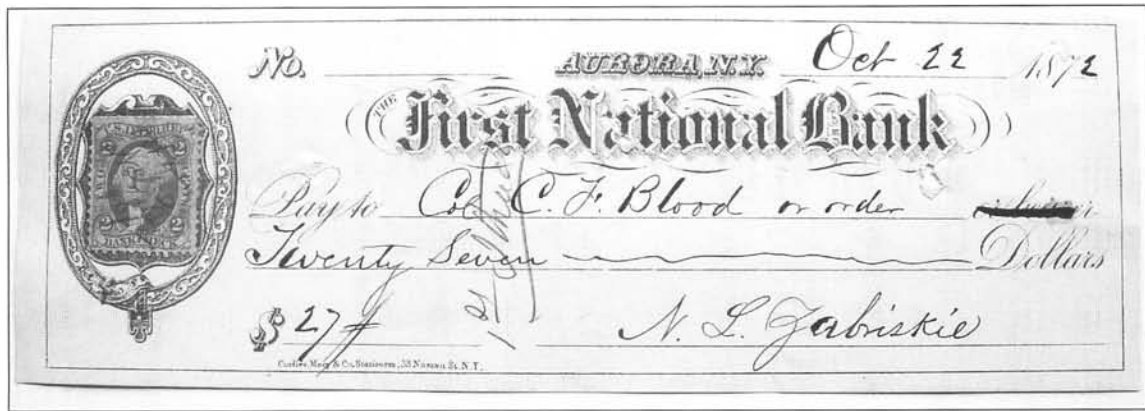 No. AURORA, N.Y. Oct 22 1872
THE
First National Bank
Pay to Col. C. F. Blood or order
Twenty Seven Dollars
$ 27 N. L. Zabriskie
2 2
2 2
BANK CHECK
& Co. Stationers, 53 Nassau St. N.Y.